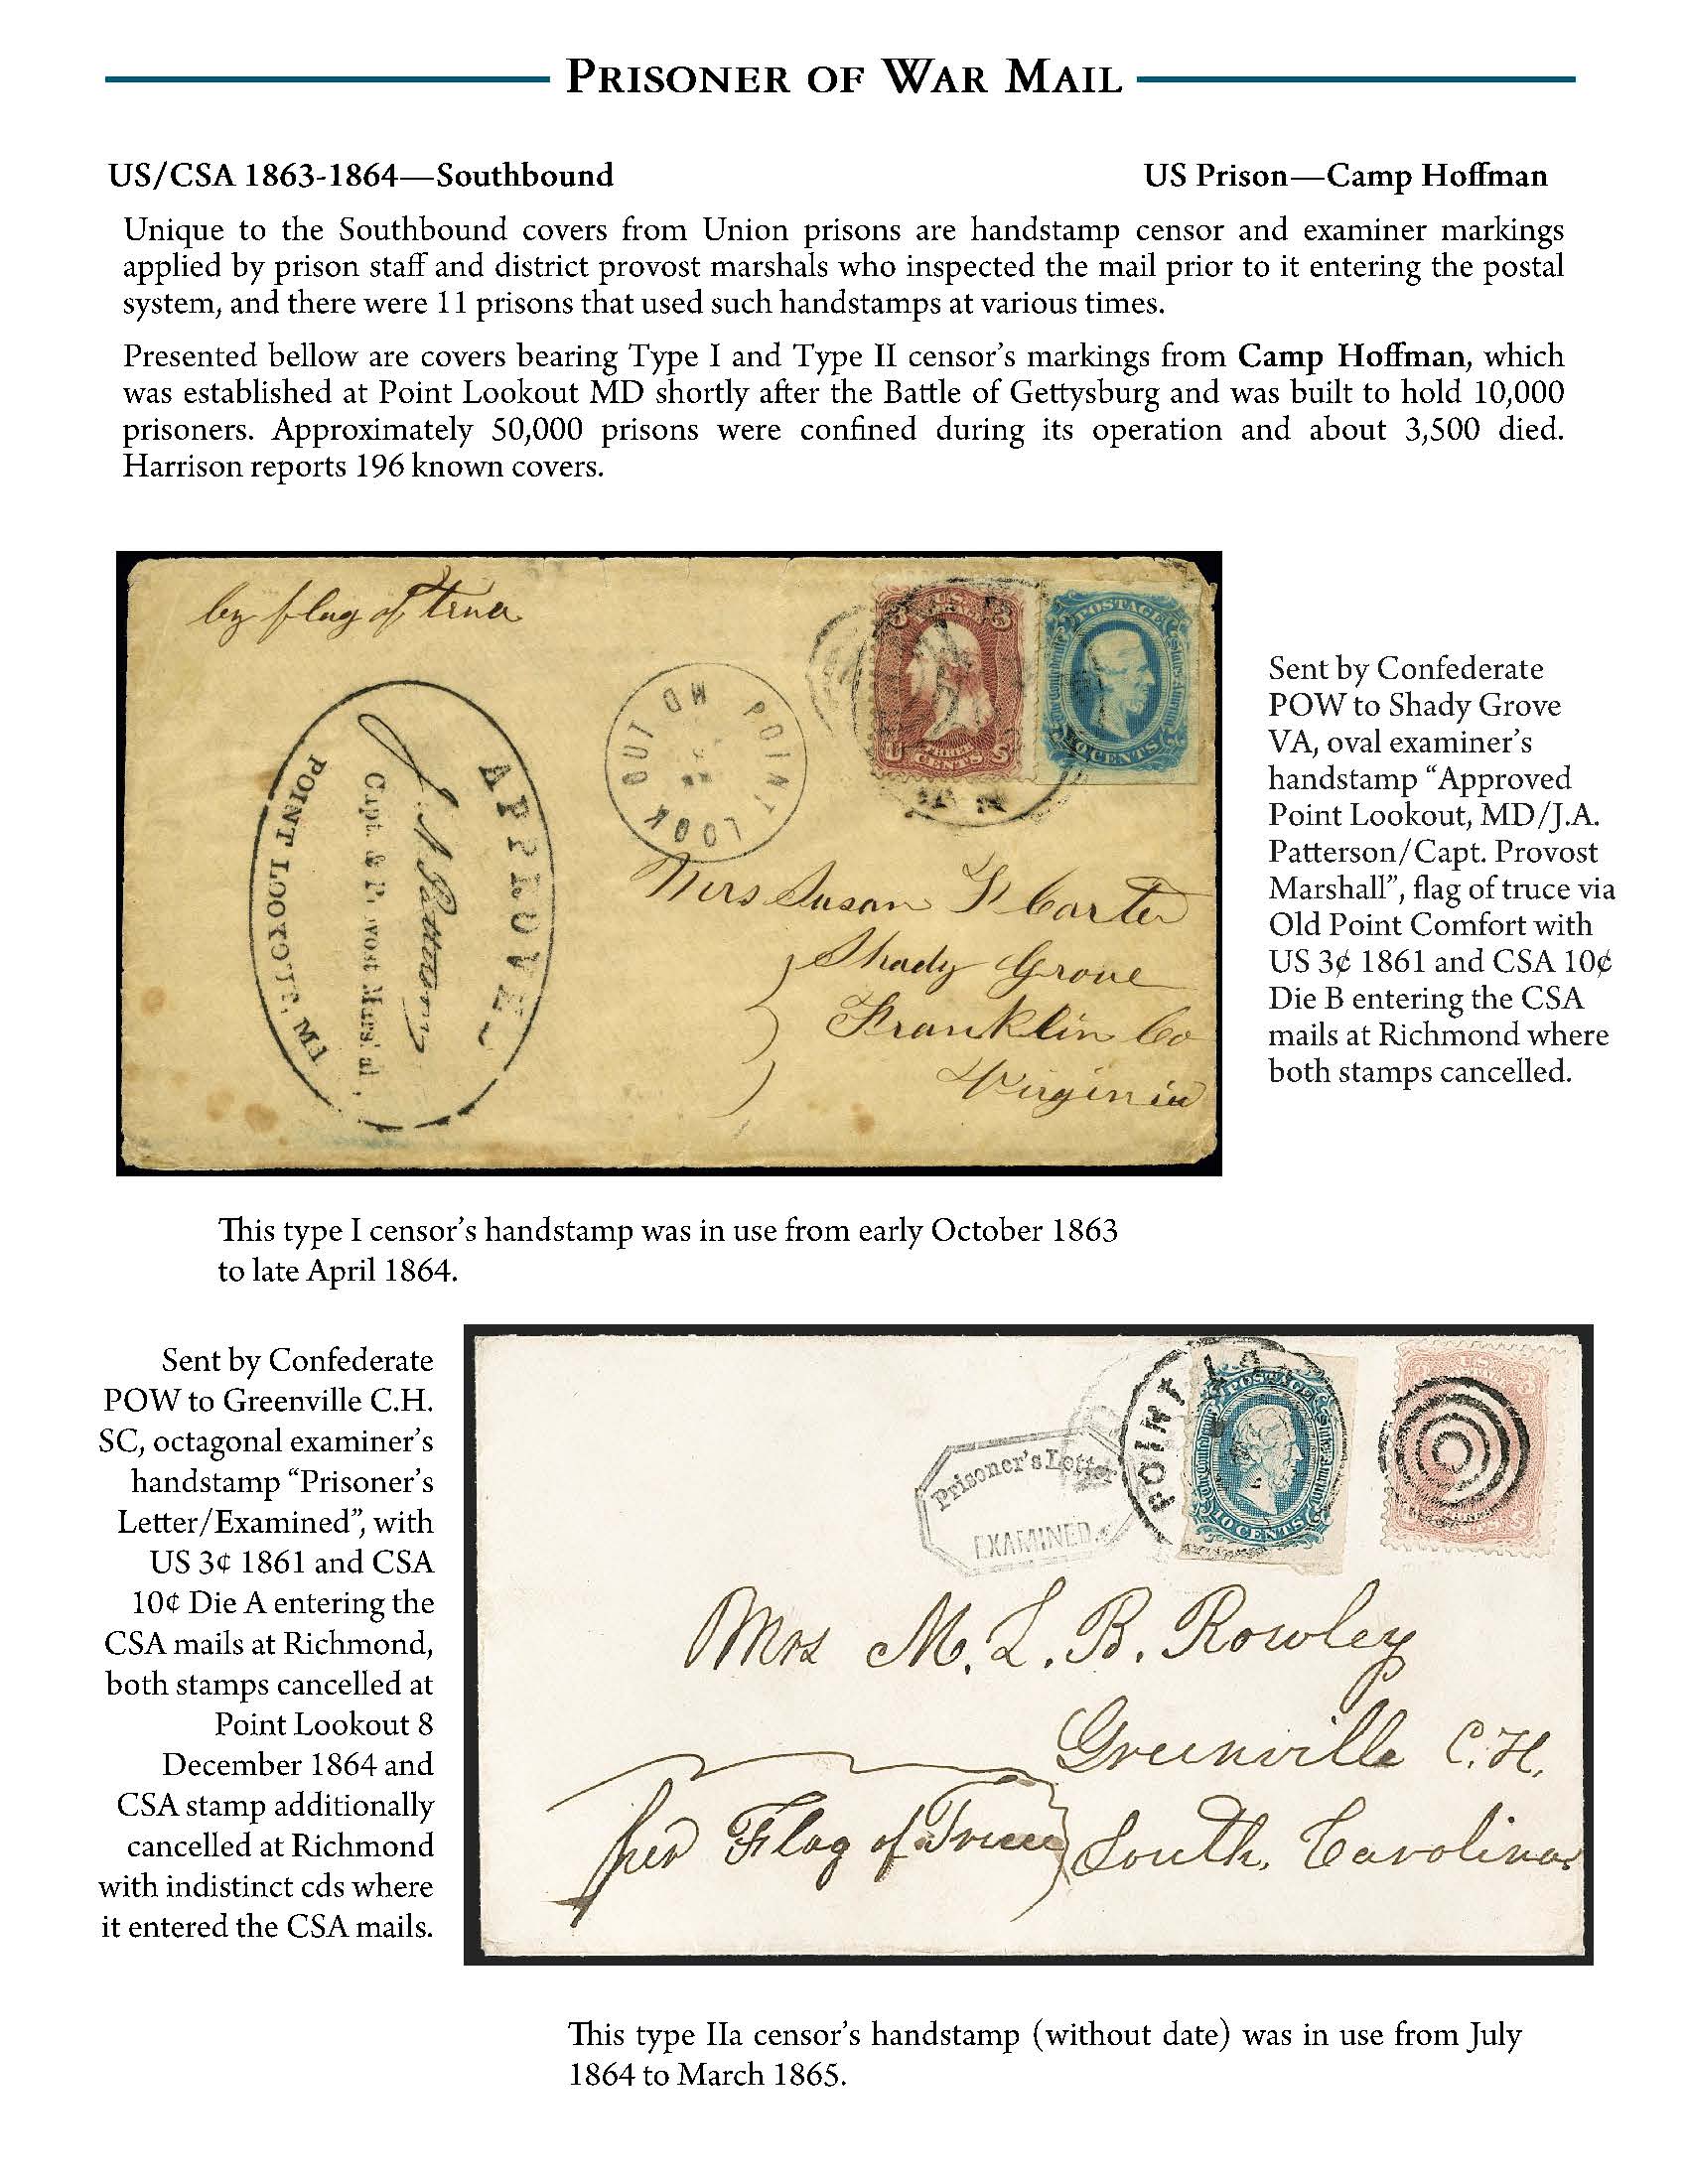 Prisoner of War Mail
US/CSA 1863-1864—Southbound
US Prison—Camp Hoffman
Unique to the Southbound covers from Union prisons are handstamp censor and examiner markings
applied by prison staff and district provost marshals who inspected the mail prior to it entering the postal
system, and there were 11 prisons that used such handstamps at various times.
Presented bellow are covers bearing Type I and Type II censor's markings from Camp Hoffman, which
was established at Point Lookout MD shortly after the Battle of Gettysburg and was built to hold 10,000
prisoners. Approximately 50,000 prisons were confined during its operation and about 3,500 died.
Harrison reports 196 known covers.
by flag of truce
APPROVE
J. A. Patterson
Capt. & Provost Marshal,
POINT LOOKOUT, MD
POINT LOOK OUT MD
U.S. POSTAGE
THREE CENTS
U S
POSTAGE
The Confederate States of America
10 CENTS
Mrs Susan F Carter
Shady Grove
Franklin Co
Virginia
Sent by Confederate
POW to Shady Grove
VA, oval examiner's
handstamp “Approved
Point Lookout, MD/J.A.
Patterson/Capt. Provost
Marshall”, flag of truce via
Old Point Comfort with
US 3¢ 1861 and CSA 10¢
Die B entering the CSA
mails at Richmond where
both stamps cancelled.
This type I censor's handstamp was in use from early October 1863
to late April 1864.
Sent by Confederate
POW to Greenville C.H.
SC, octagonal examiner's
handstamp “Prisoner's
Letter/Examined”, with
US 3¢ 1861 and CSA
10¢ Die A entering the
CSA mails at Richmond,
both stamps cancelled at
Point Lookout 8
December 1864 and
CSA stamp additionally
cancelled at Richmond
with indistinct cds where
it entered the CSA mails.
Prisoner's Letter
EXAMINED.
POINT L
POSTAGE
10 CENTS
Mrs M. L. B. Rowley
Greenville C. H.
per Flag of Truce
South, Carolina
This type IIa censor's handstamp (without date) was in use from July
1864 to March 1865.